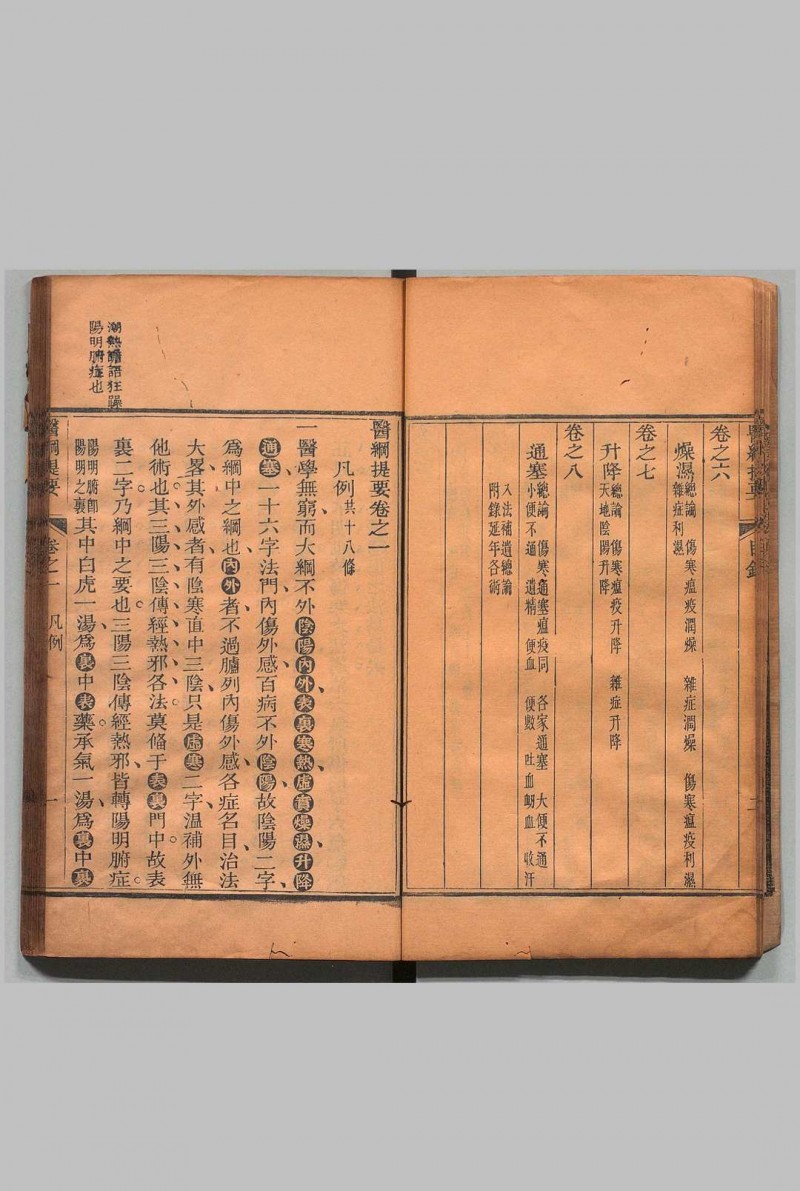 卷之六
燥濕總論 傷寒瘟疫潤燥 雜症潤燥 傷寒瘟疫利濕
雜症利濕
卷之七
升降總論 傷寒瘟疫升降 雜症升降
天地陰陽升降
卷之八
通塞總論 傷寒通塞瘟疫同 各家通塞 大便不通
小便不通 遺精 便血 便數 吐血衂血 收汗
入法補遺總論
附錄延年各術
醫綱提要 目錄 二
醫綱提要卷之一
凡例共十八條
一醫學無窮而大綱不外陰陽內外表裏寒熱虛實燥濕升降
通塞一十六字法門內傷外感百病不外陰陽故陰陽二字
爲綱中之綱也內外者不過臚列內傷外感各症名目治法
大畧其外感者有陰寒直中三陰只是虛寒二字温補外無
他術也其三陽三陰傳經熱邪各法莫偹于表裏門中故表
裏二字乃綱中之要也三陽三陰傳經熱邪皆轉陽明腑症
陽明腑卽
陽明之裏其中白虎一湯爲裏中表藥承氣一湯爲裏中裏
醫綱提要 卷之一 凡例 一
潮熱譫語狂躁
陽明腑症也